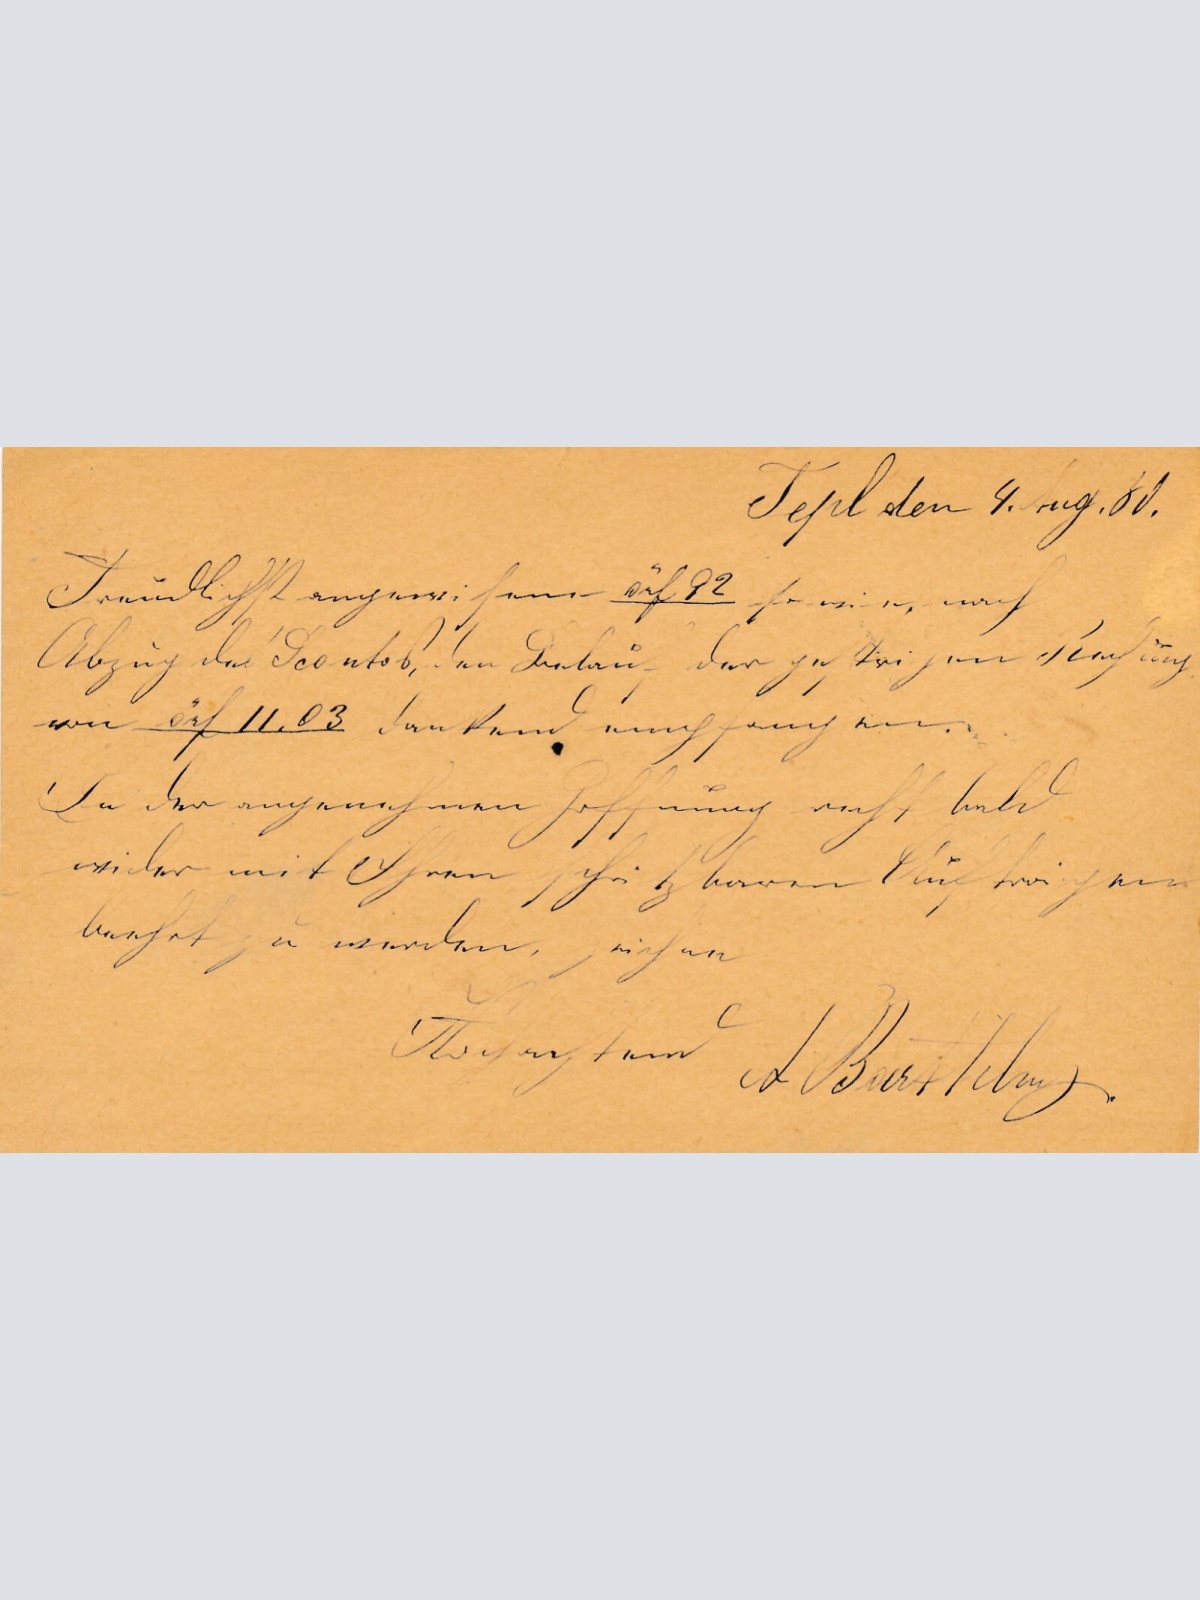 Tepl den 4. Aug. 81.
Freundlichst angewisene öWf 92 so wie, nach
Abzug des Scontos, den Belauf der gestrigen Rechnung
von öWf 11.03 dankend empfangen.
In der angenehmen Hoffnung recht bald
wider mit Ihren schätzbaren Aufträgen
beehrt zu werden, zeichne
Hochachtend A Barthelmy.